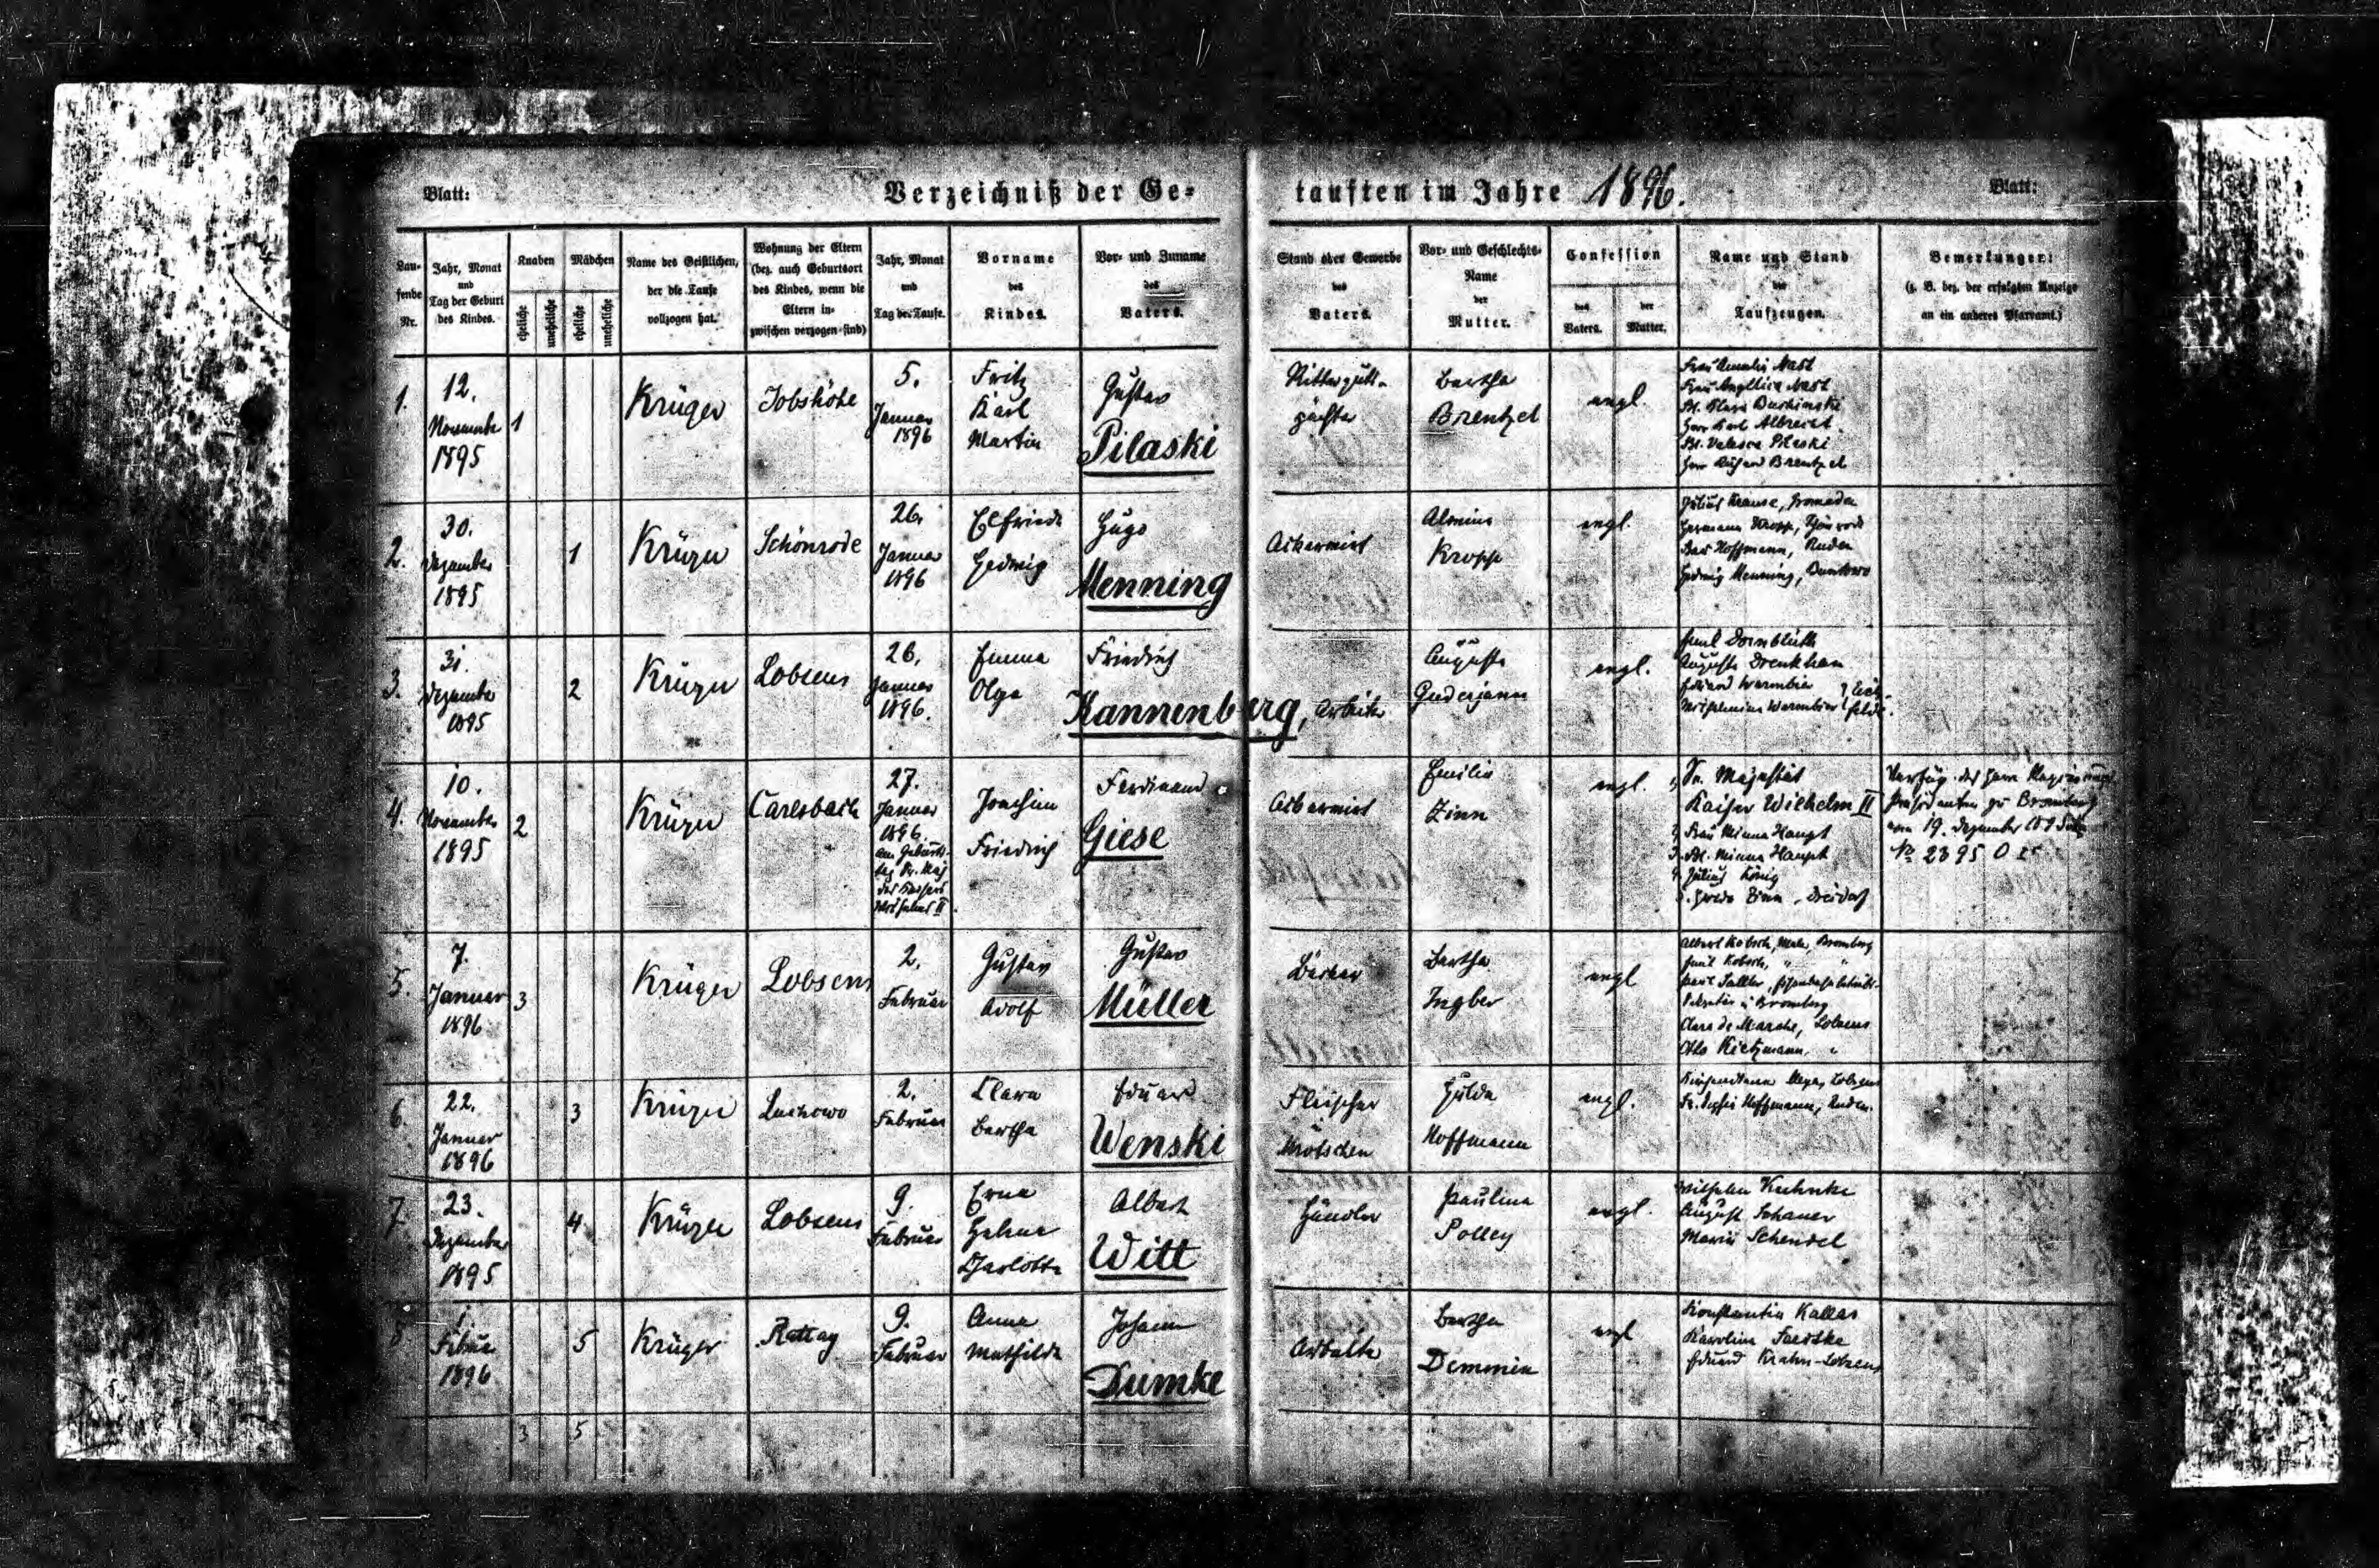 Blatt:
Verzeichniß der Ge-
tauften im Jahre 1896.
Blatt:
Lau-
fende
Nr.
Jahr, Monat
und
Tag der Geburt
des Kindes.
Knaben
eheliche
uneheliche
Mädchen
eheliche
uneheliche
Name des Geistlichen,
der die Taufe
vollzogen hat.
Wohnung der Eltern
(bez. auch Geburtsort
des Kindes, wenn die
Eltern in-
zwischen verzogen sind)
Jahr, Monat
und
Tag der Taufe.
Vorname
des
Kindes.
Vor- und Zuname
des
Vaters.
Stand oder Gewerbe
des
Vaters.
Vor- und Geschlechts-
Name
der
Mutter.
Confession
des
Vaters.
der
Mutter.
Name und Stand
der
Taufzeugen.
Bemerkungen:
(z. B. bez. der erfolgten Anzeige
an ein anderes Pfarramt.)
1.
12.
November
1895
1
Krüger
Jobshöhe
5.
Januar
1896
Fritz
Karl
Martin
Gustav
Pilaski
Ritterguts-
pächter
Bertha
Brentzel
evgl.
Frau Amalie Nast
Frau Angelica Nast
Herr Karl Albrecht
Frl. Valesca Pilaski
Herr Richard Brentzel
2.
30.
Dezember
1895
1
Krüger
Schönrode
26.
Januar
1896
Elfriede
Hedwig
Hugo
Menning
Ackerwirt
Almine
Kropp
evgl.
Julius Krause, Gromaden
Hermann Kropp, Schönrode
Hoffmann, Ruden
Hedwig Menning,
3.
31.
Dezember
1895
2
Krüger
Lobsens
26.
Januar
1896.
Emma
Olga
Friedrich
Kannenberg,
Arbeiter
Auguste
Guderjann
evgl.
Emil Dornblüth
Auguste Drenkhan
Eduard Warmbier
Wilhelmine Warmbier
4.
10.
November
1895
2
Krüger
Carlsbach
27.
Januar
1896.
am Geburts-
tag Sr. Maj
des Kaisers
Wilhelms II.
Joachim
Friedrich
Ferdinand
Giese
Ackerwirt
Emilie
Zinn
evgl.
1, Se. Majestät
Kaiser Wilhelm II
2, Frau Minna Haupt
3. Frl. Minna Haupt
4. Julius König
5. Zinn, Dreidorf
Verfüg. des Herrn Regierungs-
Präsidenten zu Bromberg
vom 19. Dezember 1895
No 2395 O
5.
7.
Januar
1896
3
Krüger
Lobsens
2.
Februar
Gustav
Adolf
Gustav
Müller
Bäcker
Bertha
Ingber
evgl
Albert Kobsch, Maler, Bromberg
Emil Kobsch, " "
Sekretär in Bromberg
Clara de Marche, Lobsens
Otto Kietzmann, "
6.
22.
Januar
1896
3
Krüger
Luchowo
2.
Februar
Clara
Bertha
Eduard
Wenski
Fleischer
Mrotschen
Hulda
Hoffmann
evgl.
Fr. Sophie Hoffmann, Ruden.
7.
23.
Dezember
1895
4
Krüger
Lobsens
9.
Februar
Erna
Helene
Charlotte
Albert
Witt
Händler
Pauline
Polley
evgl.
Wilhelm Kuhnke
August Schauer
Marie Schendel
8
1.
Februar
1896
5
Krüger
Rattay
9.
Februar
Anna
Mathilde
Johann
Dumke
Arbeiter
Bertha
Demmin
evgl
Konstantin Kallas
Karoline Saeske
Eduard Krahn-Lobsens
3
5